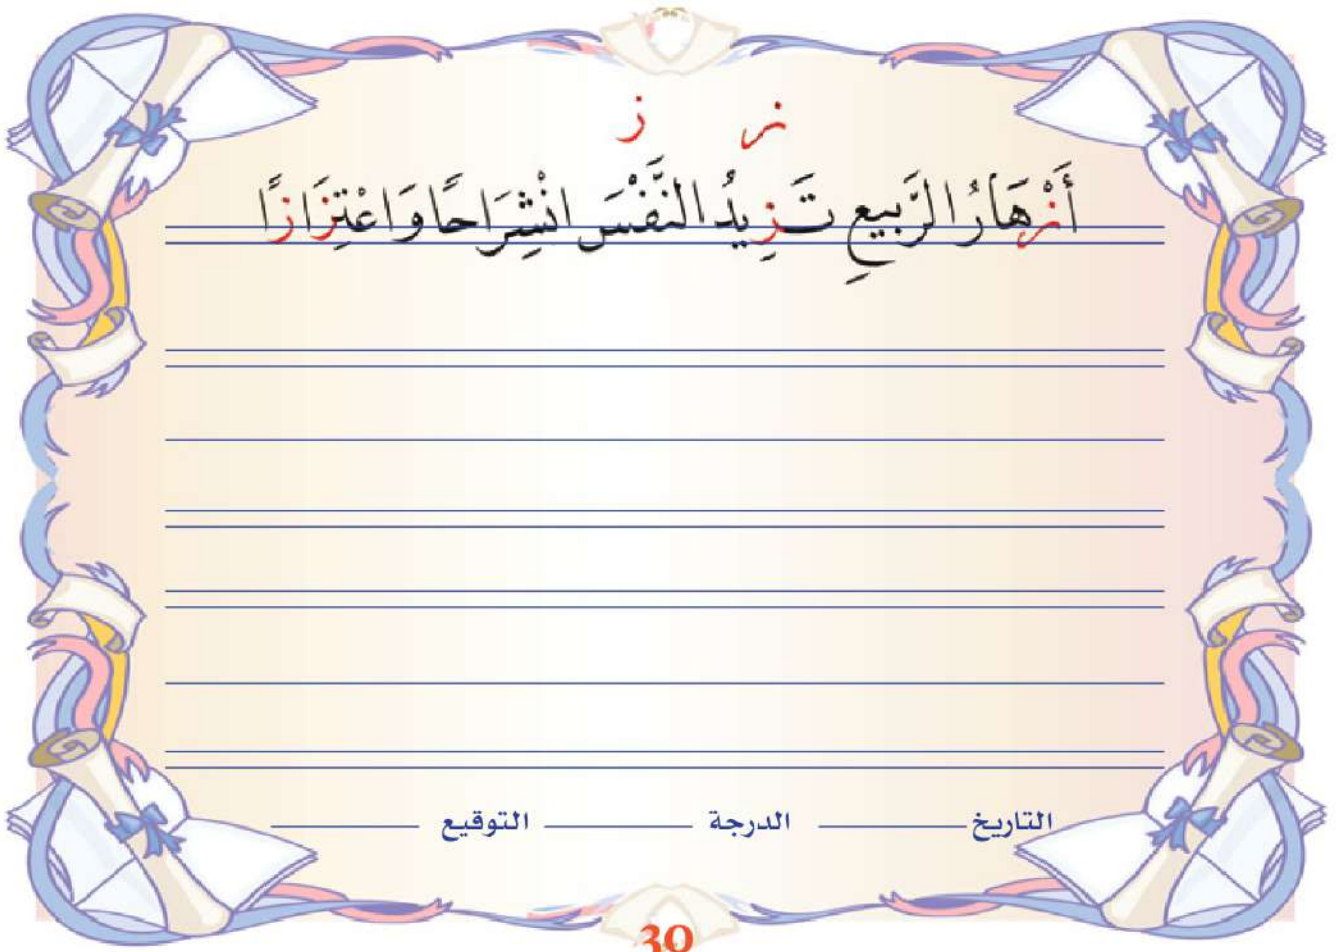 ـز ز
أَزْهَارُ الرَّبِيعِ تَزِيدُ النَّفْسَ انْشِرَاحًا وَاعْتِزَازًا
التاريخ الدرجة التوقيع
30